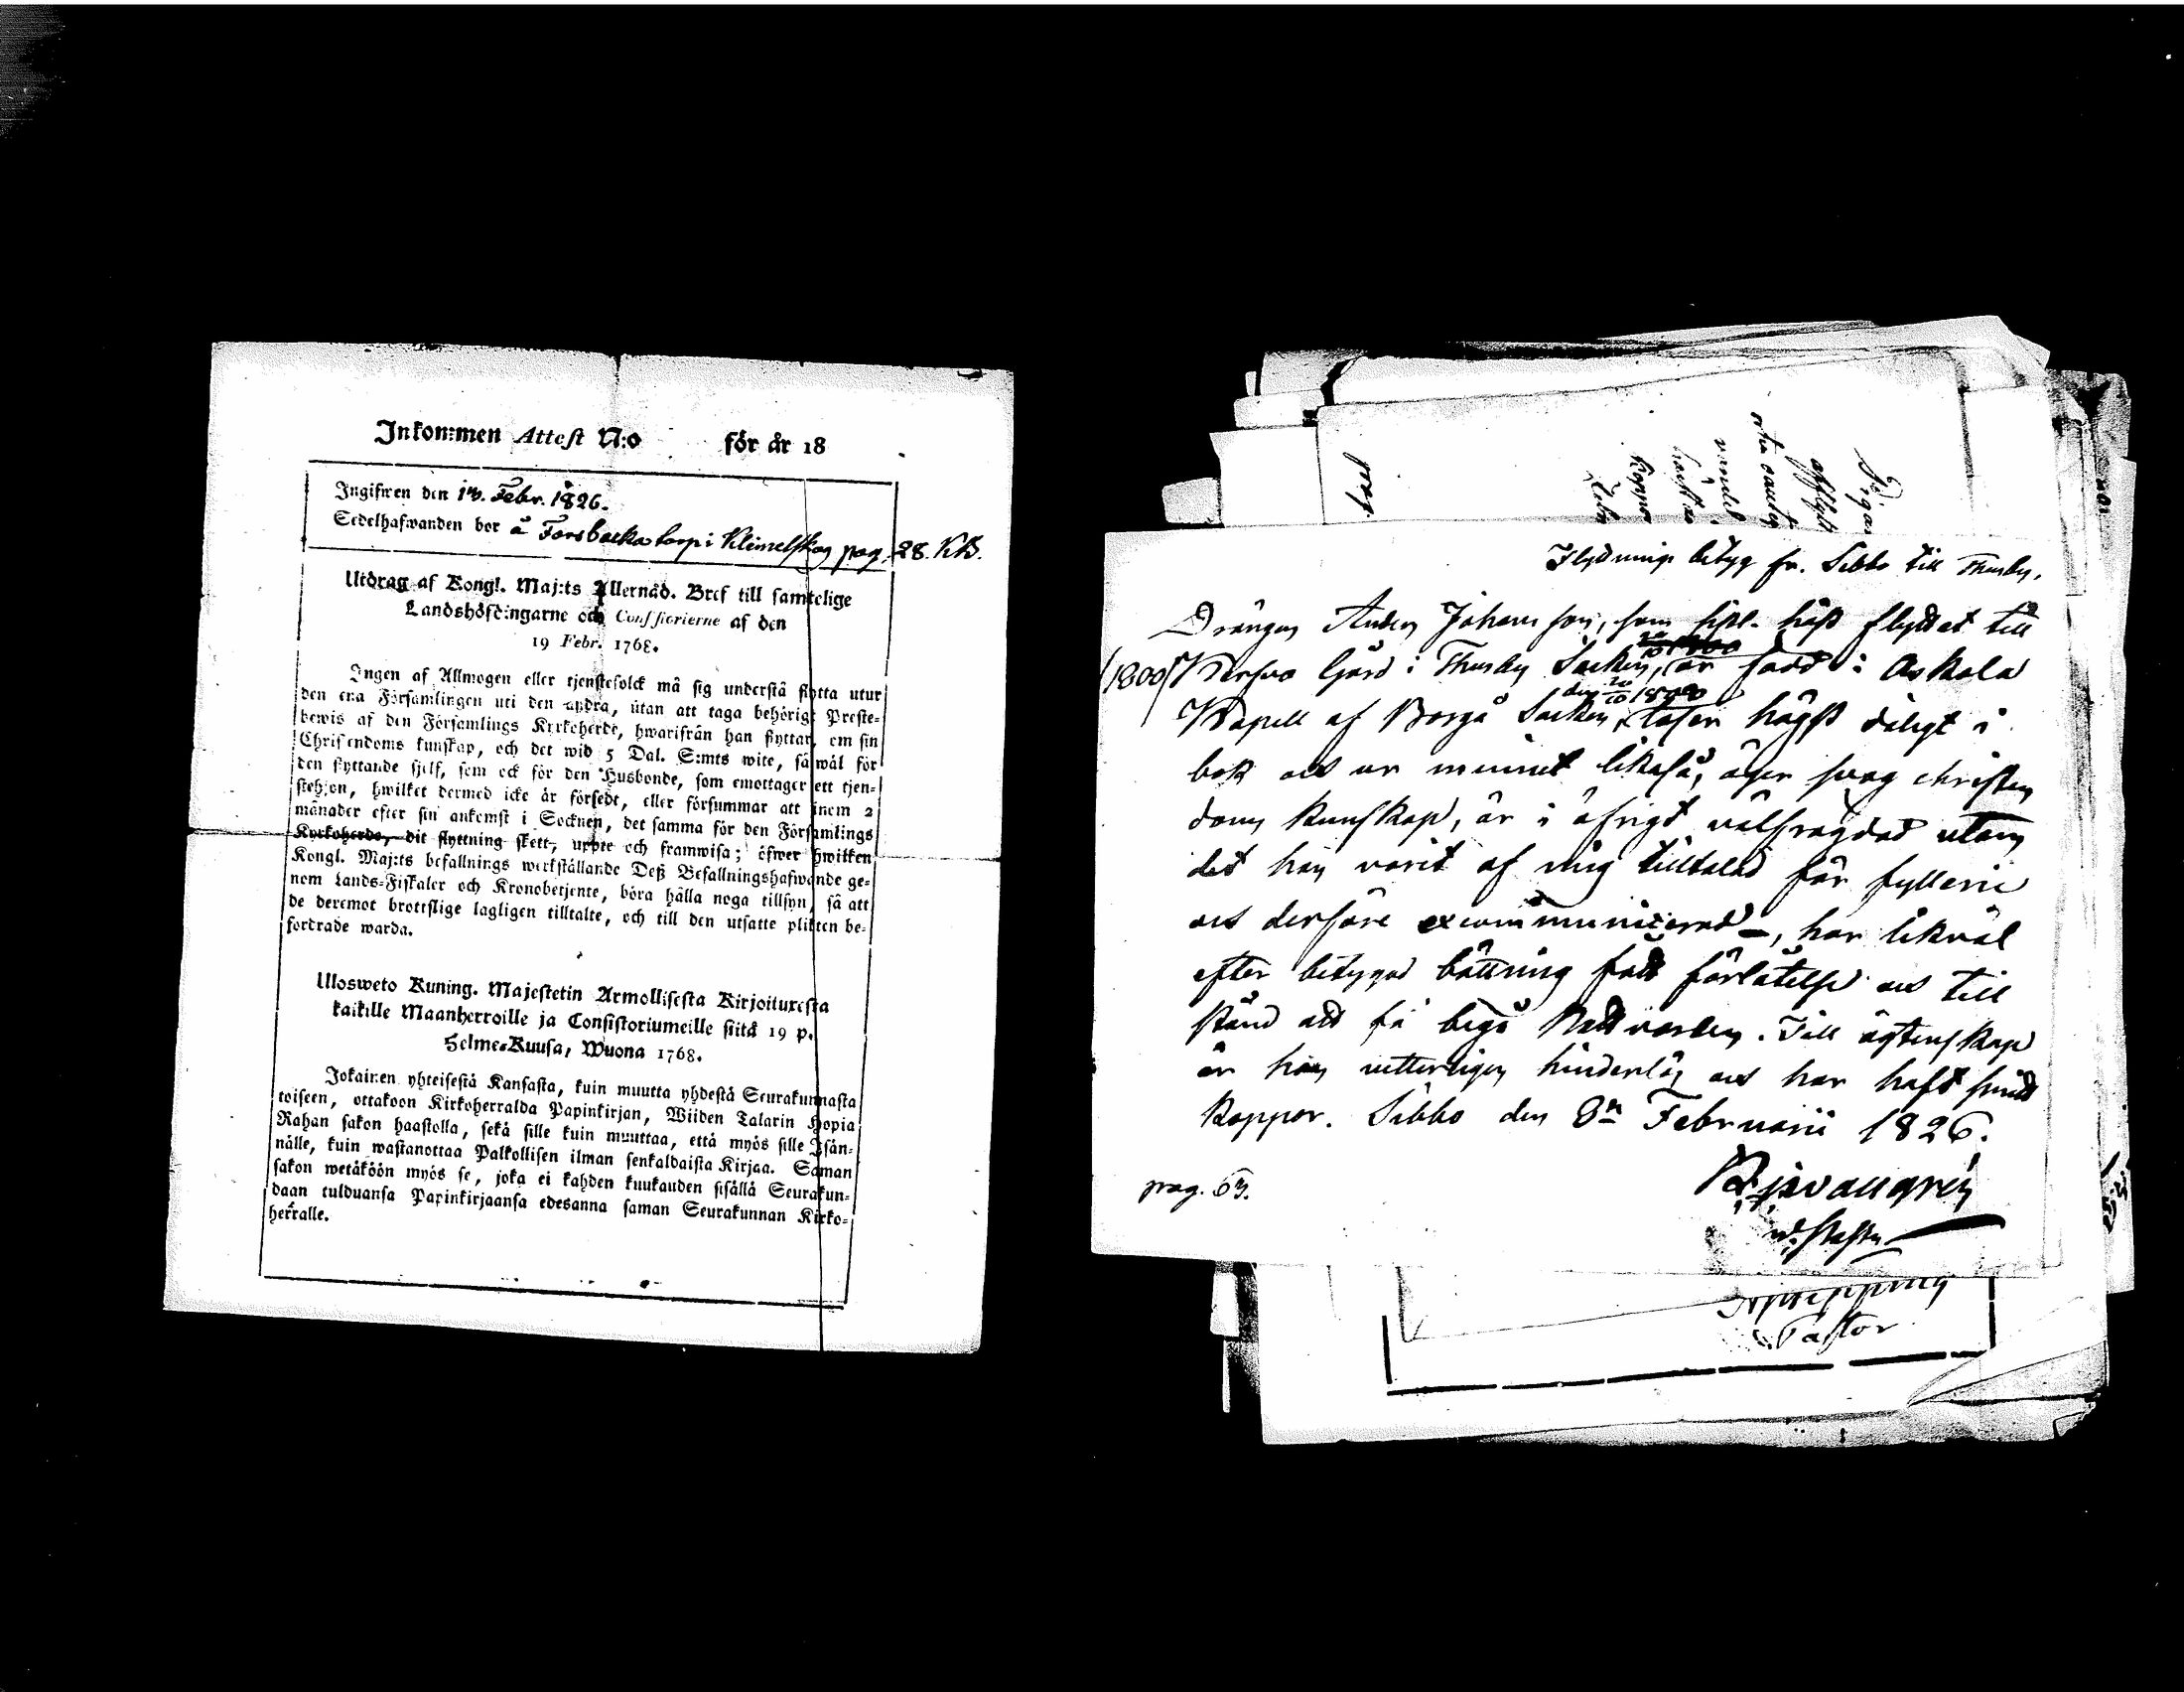 Inkommen Attest N:o för år 18
Ingifwen den 13. Febr. 1826.
Sedelhafwanden bor å Forsbacka torp i Klemetskog pag. 28. KB.
Utdrag af Kongl. Maj:ts Allernåd. Bref till samtelige
Landshöfdingarne och Consistorierne af den
19 Febr. 1768.
Ingen af Allmogen eller tjenstefolck må sig understå flytta utur
den ena Församlingen uti den andra, utan att taga behörigt Preste-
bewis af den Församlings Kyrkoherde, hwarifrån han flyttar, om sin
Christendoms kunskap, och det wid 5 Dal. S:mts wite, så wäl för
den flyttande sjelf, som ock för den Husbonde, som emottager ett tjen-
stehjon, hwilket dermed icke är försedt, eller försummar att inom 2
månader efter sin ankomst i Socknen, det samma för den Församlings
Kyrkoherde, dit flyttning skett, uppte och framwisa; öfwer hwilken
Kongl. Maj:ts befallnings werkställande Deß Befallningshafwande ge-
nom Lands-Fiskaler och Kronobetjente, böra hålla noga tillsyn, så att
de deremot brottslige lagligen tilltalte, och till den utsatte plikten be-
fordrade warda.
Ulosweto Kuning. Majestetin Armollisesta Kirjoituxesta
kaikille Maanherroille ja Consistoriumeille siitä 19 p.
Helme-Kuusa, Wuona 1768.
Jokainen yhteisestä Kansasta, kuin muutta yhdestä Seurakunnasta
toiseen, ottakoon Kirkoherralda Papinkirjan, Wiiden Talarin Hopia
Rahan sakon haastolla, sekä sille kuin muuttaa, että myös sille Isän-
nälle, kuin wastanottaa Palkollisen ilman senkaldaista Kirjaa. Saman
sakon wetäköön myös se, joka ei kahden kuukauden sisällä Seurakun-
daan tulduansa Papinkirjaansa edesanna saman Seurakunnan Kirko-
herralle.
Flyttnings betyg fr. Sibbo till Thusby.
Drängen Anders Johansson, som sistl. höst flyttat till
(1800) gård i Thusby Socken, är född i Askola
den 20/10 1800
Kapell af Borgå Socken, läser högst dåligt i
bok och ur minnet likaså, äger svag christen
doms kunskap, är i öfrigt välfrägdad utom
det han varit af mig tilltalad för fylleri
och derföre excommunicerad, har likväl
efter betygad bättring fått förlåtelse och till
stånd att få begå Nattvarden. Till ägtenskap
är han vitterligen hinderlös och har haft smitt
koppor. Sibbo den 8n Februarii 1826.
pag. 63.
Pastor